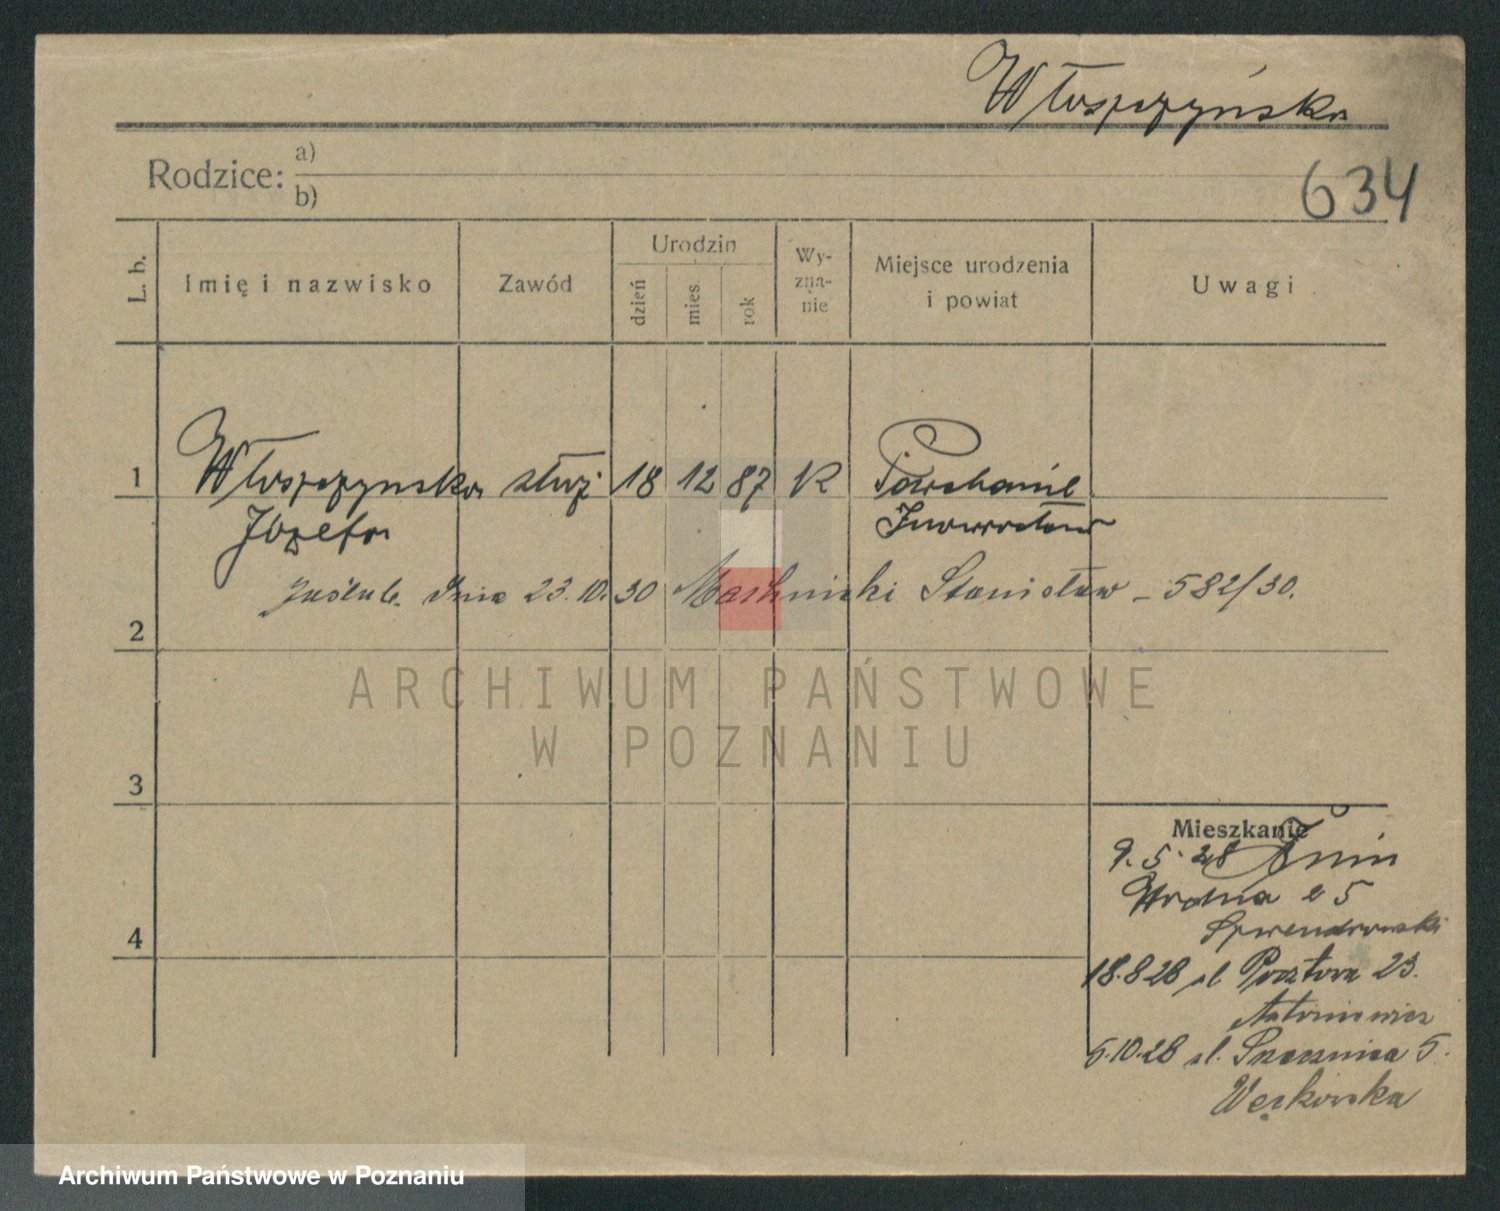 Włoszczyńska
Rodzice: a)
b)
634
L. b.
Imię i nazwisko
Zawód
Urodzin
dzień
mies.
rok
Wy-
zna-
nie
Miejsce urodzenia
i powiat
Uwagi
1 Włoszczynska służ 18 12 87 K
Józefa
Inowrocław
zaślub. dnia 23.10.30 Stanisław - 582/30.
2
ARCHIWUM PAŃSTWOWE
W POZNANIU
3
4
Mieszkanie
9.5.28 Żnin
5
18.8.28 ul Pocztowa 23.
Antoniewicz
5.10.28 ul. 5.
Archiwum Państwowe w Poznaniu